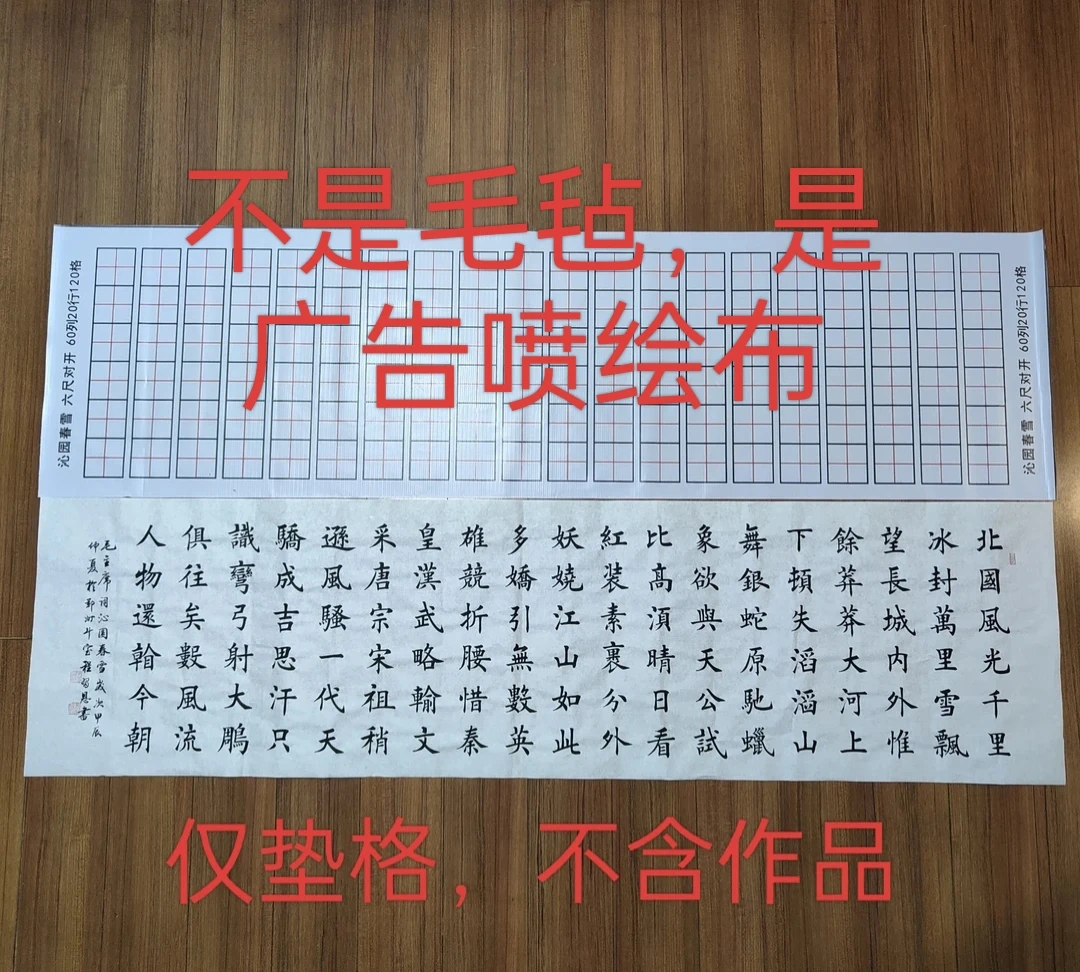 不是毛毡，是
广告喷绘布
沁园春雪 六尺对开 60列20行120格
沁园春雪 六尺对开 60列20行120格
北國風光千里
冰封萬里雪飄
望長城内外惟
餘莽莽大河上
下頓失滔滔山
舞銀蛇原馳蠟
象欲與天公試
比高湏晴日看
紅装素裹分外
妖嬈江山如此
多嬌引無數英
雄競折腰惜秦
皇漢武略輸文
采唐宗宋祖稍
遜風騷一代天
驕成吉思汗只
識彎弓射大鵰
俱往矣數風流
人物還翰今朝
毛主席词沁園春雪歲次甲辰
仲夏於鄭州斗室程書
仅垫格，不含作品